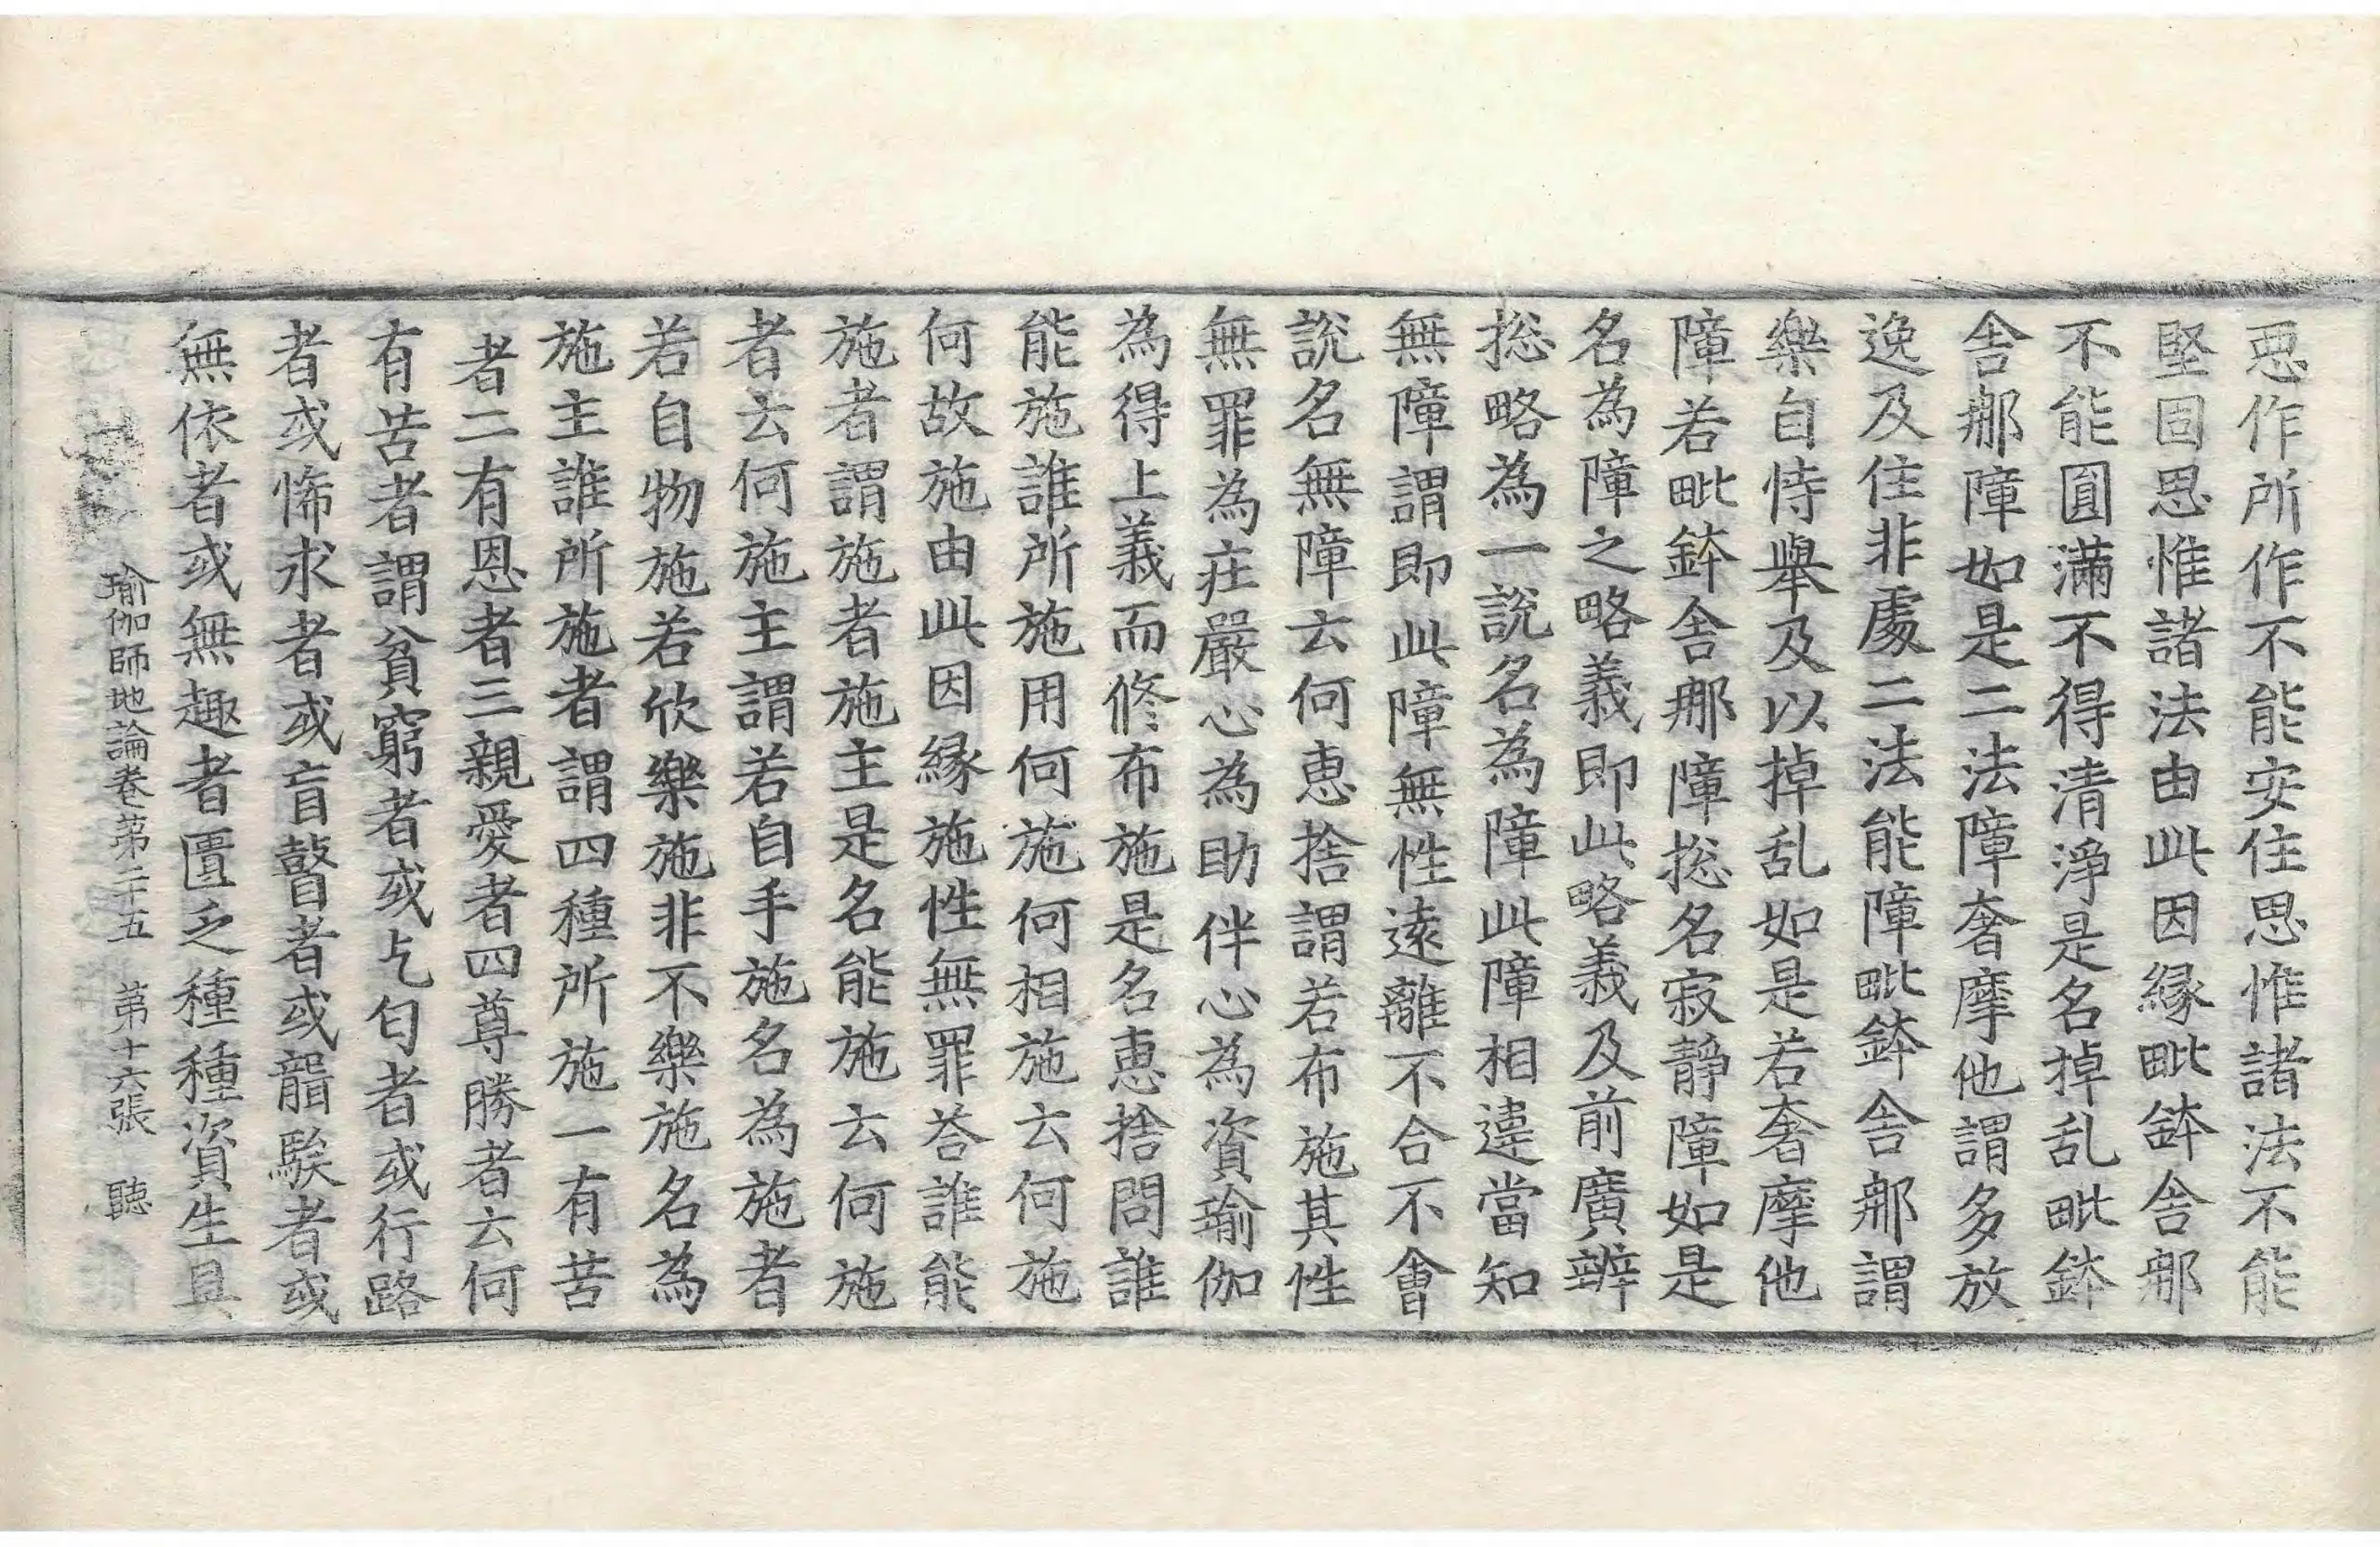 惡作所作不能安住思惟諸法不能
堅固思惟諸法由此因緣毗鉢舍那
不能圓滿不得清淨是名掉乱毗鉢
舍那障如是二法障奢摩他謂多放
逸及住非處二法能障毗鉢舍那謂
樂自恃舉及以掉乱如是若奢摩他
障若毗鉢舍那障揔名寂靜障如是
名為障之略義即此略義及前廣辨
揔略為一說名為障此障相違當知
無障謂即此障無性遠離不合不會
說名無障云何惠捨謂若布施其性
無罪為莊嚴心為助伴心為資瑜伽
為得上義而修布施是名惠捨問誰
能施誰所施用何施何相施云何施
何故施由此因緣施性無罪荅誰能
施者謂施者施主是名能施云何施
者云何施主謂若自手施名為施者
若自物施若欣樂施非不樂施名為
施主誰所施者謂四種所施一有苦
者二有恩者三親愛者四尊勝者云何
有苦者謂貧窮者或乞匂者或行路
者或悕求者或盲瞽者或聾騃者或
無依者或無趣者匱乏種種資生具
瑜伽師地論卷第二十五 第十六張 聽